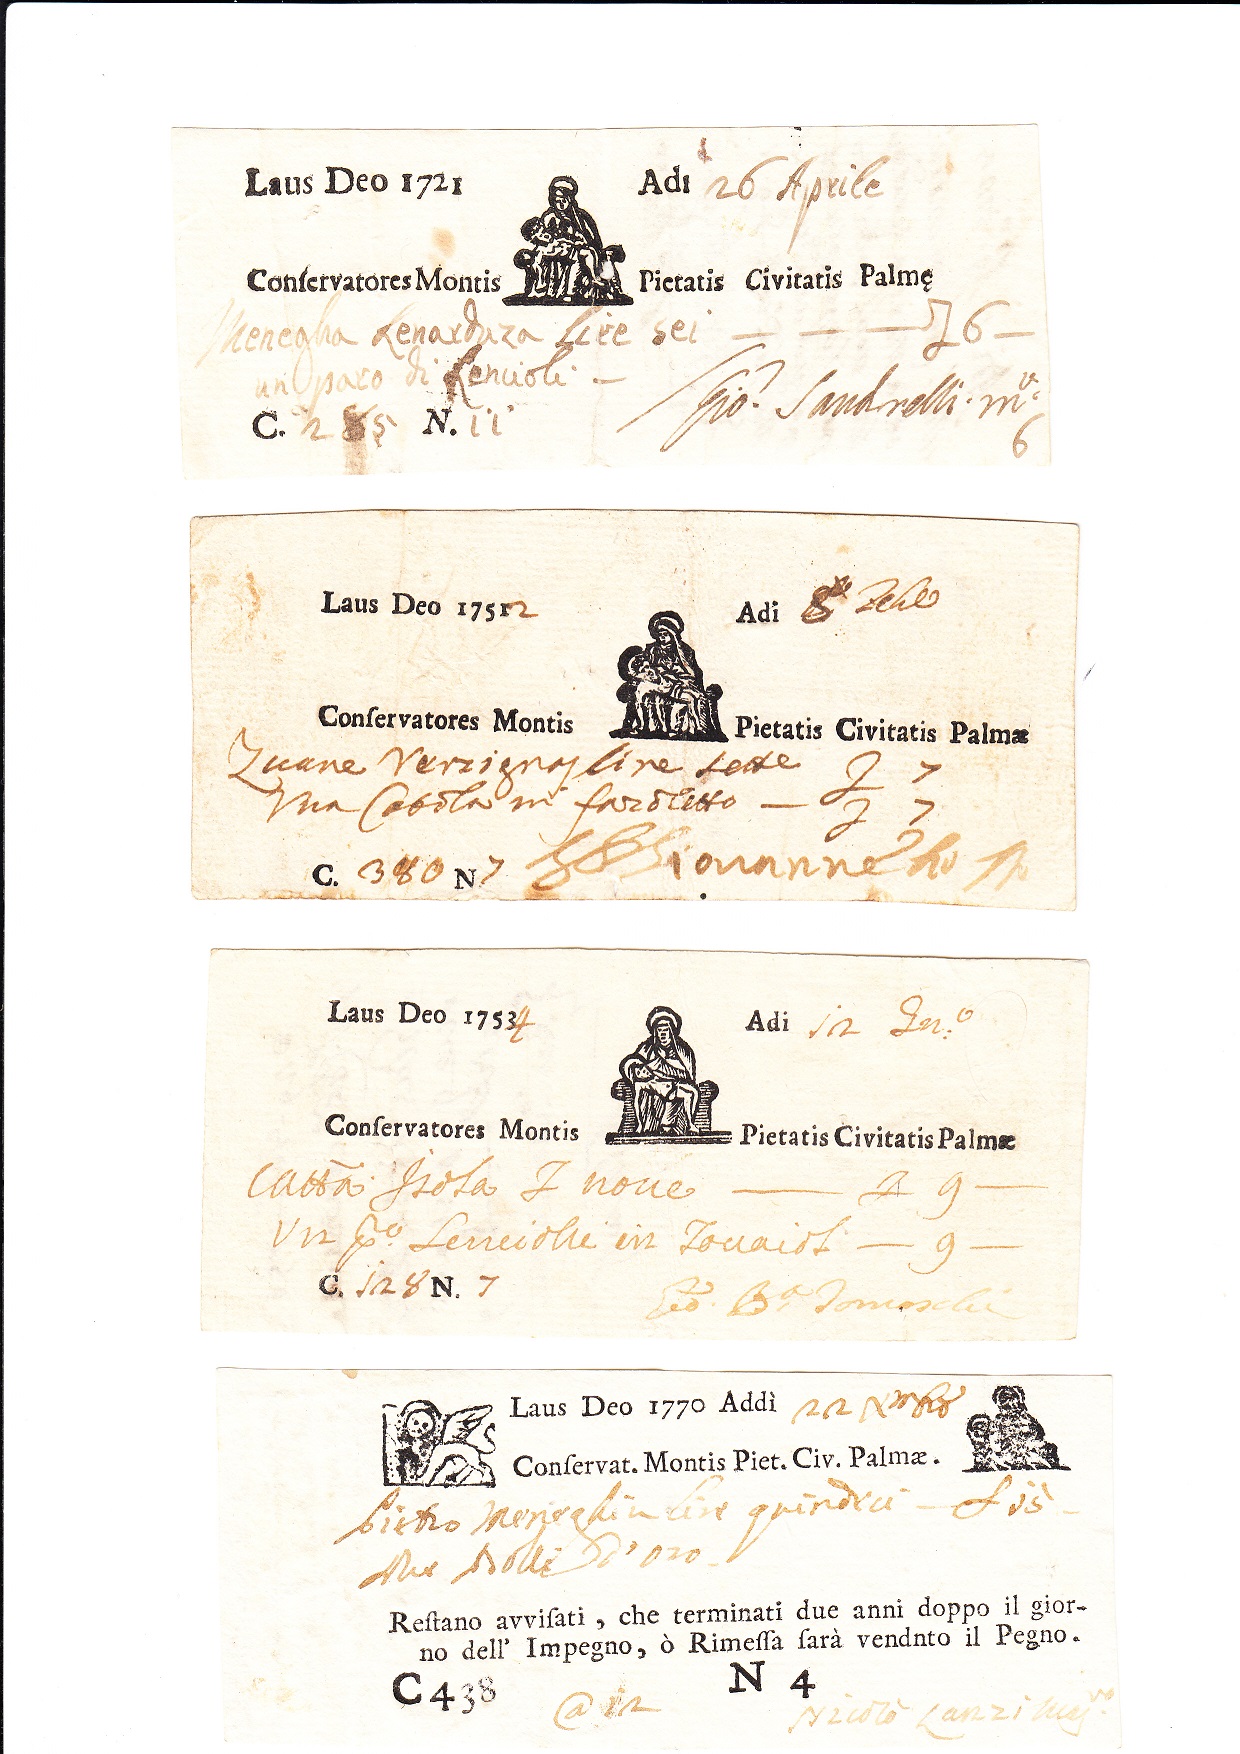 Laus Deo 1721 Adi 26 Aprile
Conſervatores Montis Pietatis Civitatis Palmę
Menegha Lenarduza Lire sei — — — 6 —
un paro di Lencioli —
Gio. Sandrelli
C. 285 N. 11
6
Laus Deo 17512 Adi 8
Conſervatores Montis Pietatis Civitatis Palmæ
Zuane lire sette 7
Una fazoletto — 7
C. 380 N 7
Laus Deo 17534 Adi 12 Gn.º
Conſervatores Montis Pietatis Civitatis Palmæ
Cattã Isola noue — 9 —
Vn Lenciolli in — 9 —
C. 128 N. 7
Laus Deo 1770 Addì 22 Xmbre
Conſervat. Montis Piet. Civ. Palmæ.
Pietro Meneghin Lire quindeci — 15 —
d'oro.
Reſtano avviſati, che terminati due anni doppo il gior-
no dell' Impegno, ò Rimeſſa ſarà vendnto il Pegno.
C 438 N 4
@ 12 Nicolò Lanzi